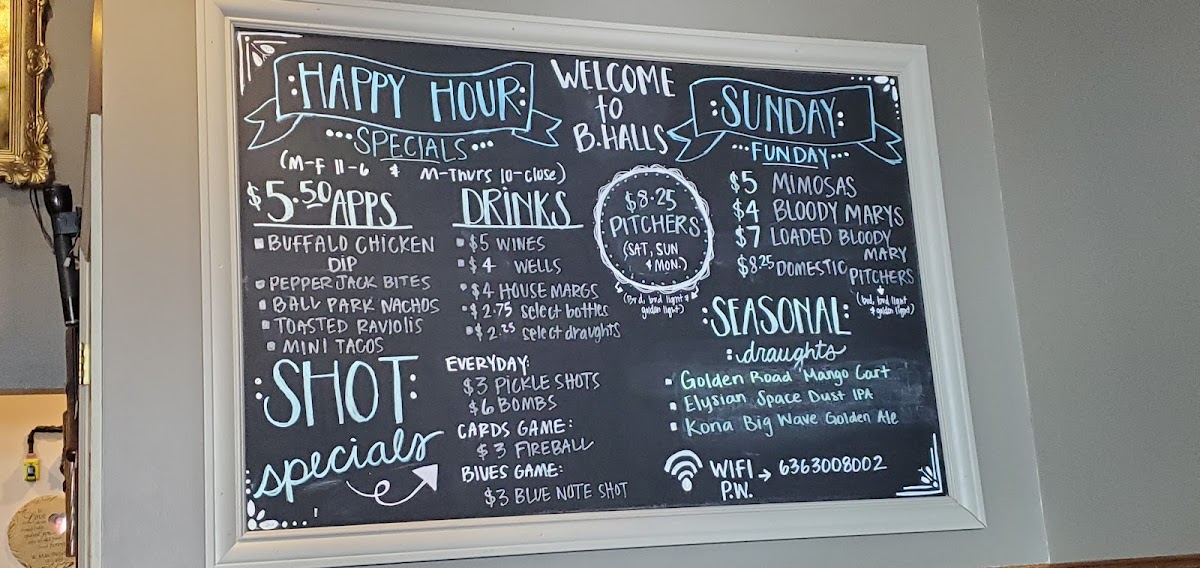 HAPPY HOUR
SPECIALS
(M-F 11-6 & M-Thurs 10-close)
$5.50 APPS
BUFFALO CHICKEN
DIP
PEPPER JACK BITES
BALL PARK NACHOS
TOASTED RAVIOLIS
MINI TACOS
DRINKS
$5 WINES
$4 WELLS
$4 HOUSE MARGS
$2.75 select bottles
$2.25 select draughts
WELCOME
to
B.HALLS
$8.25
PITCHERS
(SAT, SUN
& MON.)
(Bud, bud light &
golden light)
SUNDAY
FUNDAY
$5 MIMOSAS
$4 BLOODY MARYS
$7 LOADED BLOODY
MARY
$8.25 DOMESTIC PITCHERS
(bud, bud light
& golden light)
SEASONAL
draughts
Golden Road Mango Cart
Elysian Space Dust IPA
Kona Big Wave Golden Ale
SHOT
specials
EVERYDAY:
$3 PICKLE SHOTS
$6 BOMBS
CARDS GAME:
$3 FIREBALL
BLUES GAME:
$3 BLUE NOTE SHOT
WIFI → 6363008002
P.W.